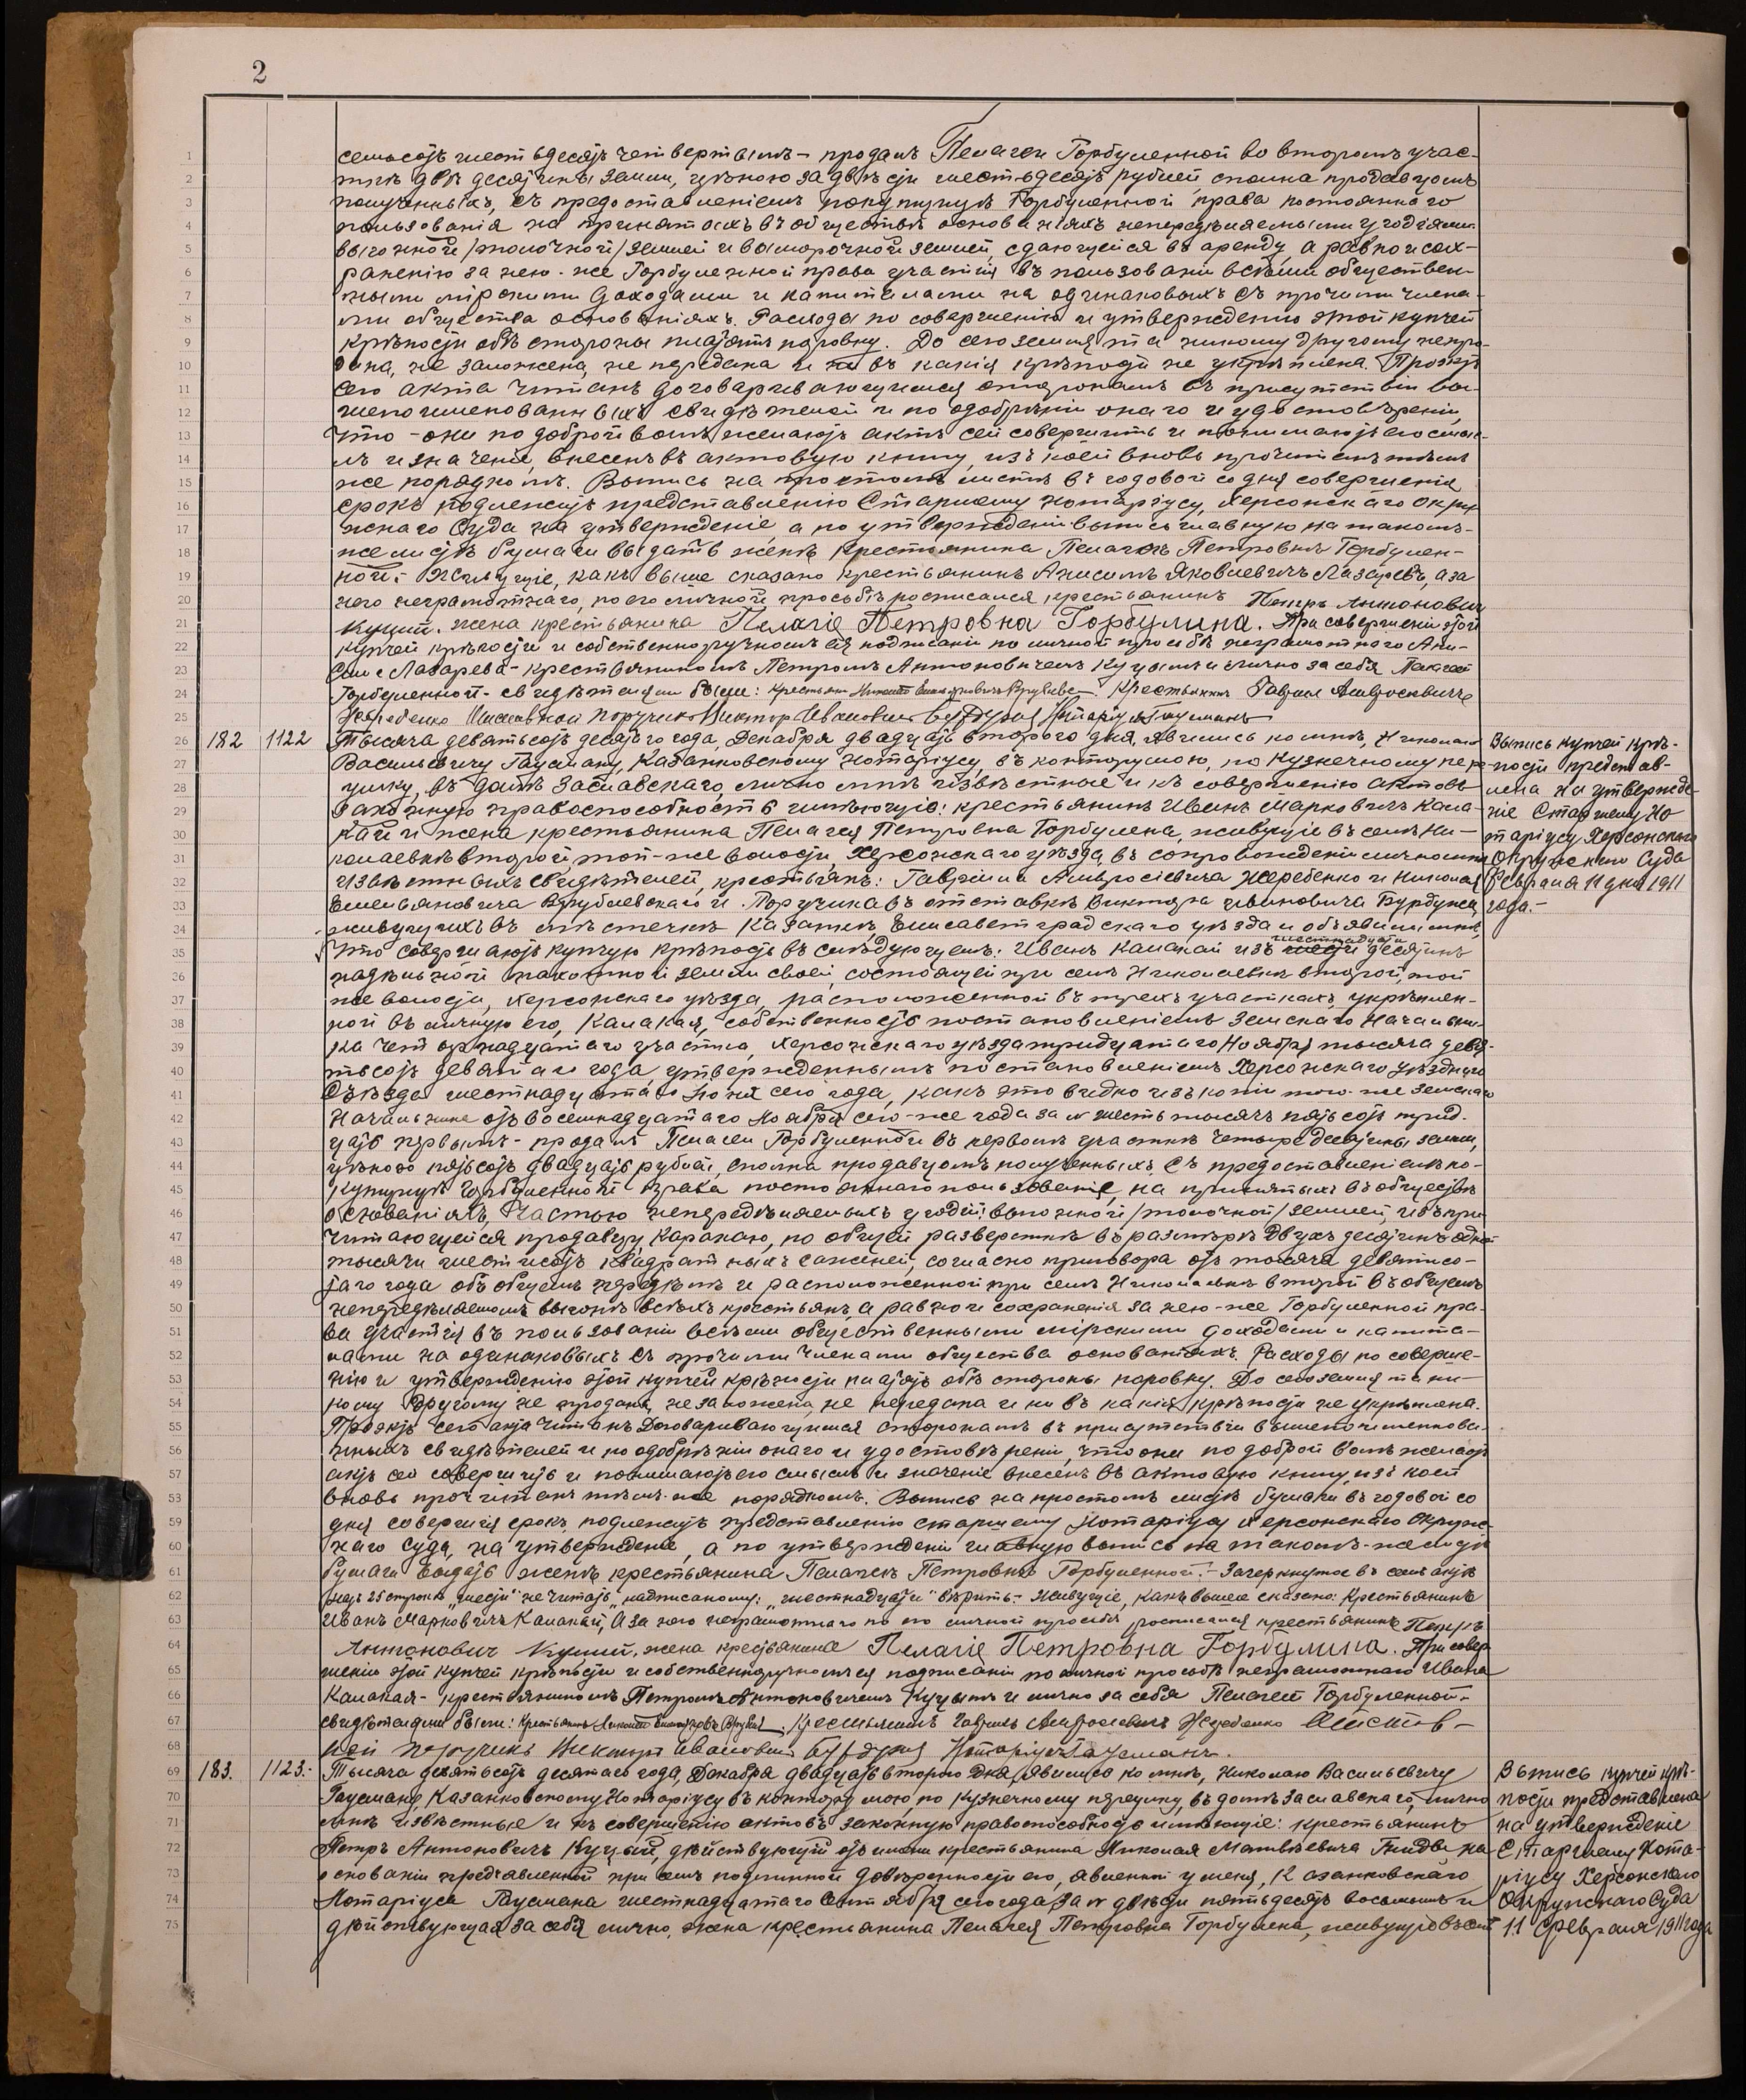 2
семьсотъ шестьдесятъ четвертымъ - продалъ Пелагеи Горбуленной во второмъ учас-
ткѣ двѣ десятины земли, цѣною за двѣсти шестьдесятъ рублей, сполна продавцомъ
полученныхъ, съ предоставленіемъ покупщицѣ Горбуленной права постояннаго
пользованія на принятыхъ въ обществѣ основаніяхъ нераздѣляемыми угодіями
выгонной /толочной/ землей и выморочной землей, сдающейся въ аренду, а равно и сох-
раненію за нею-же Горбуленной права участія въ пользованіи всѣми обществен-
ными мірскими доходами и капиталами на одинаковыхъ съ прочими члена-
ми общества основаніяхъ. Расходы по совершенію и утвержденію этой купчей
крѣпости обѣ стороны платятъ поровну. До сего земля та никому другому непро-
дана, не заложена, не передана и ни въ какія крѣпости не укрѣплена. Проэктъ
сего акта читанъ договаривающимся сторонамъ въ присутствіи вы-
шепоименованныхъ свидѣтелей и по одобреніи онаго и удостовѣреніи,
что - они по доброй волѣ желаютъ актъ сей совершить и понимаютъ его смыс-
лъ и значеніе, внесенъ въ актовую книгу, изъ коей вновь прочитанъ тѣмъ
же порядкомъ. Выпись на простомъ листѣ въ годовой со дня совершенія
срокъ подлежитъ представленію Старшему Нотаріусу Херсонскаго Окру-
жнаго Суда на утвержденіе, а по утвержденіи выпись главную на такомъ-
же листѣ бумаги выдать женѣ крестьянина Пелагеѣ Петровнѣ Горбулен-
ной. - Живущіе, какъ выше сказано крестьянинъ Анисимъ Яковлевичъ Лазаревъ, а за
него неграмотнаго, по его личной просьбѣ росписался крестьянинъ Петръ Антонович
Куций. жена крестьянина Пелагіе Петровна Горбулина. При совершеніи этой
купчей крѣпости и собственноручномъ ея подписаніи по личной просьбѣ неграмотнаго Ани-
сима Лазарева - крестьяниномъ Петромъ Антоновичемъ Куцымъ и лично за себя Пелагеей
Горбуленной - свидѣтелями были: Крестьянинъ Гаврил Амвросиевичъ
Жеребенко Отставной поручикъ Виктор Иванович Бурдуя Нотаріусъ Гаусманъ
182 1122 Тысяча девятьсотъ десятаго года, Декабря двадцать второго дня, явились ко мнѣ, Николаю
Васильевичу Гаусману, Казанковскому Нотаріусу, въ контору мою, по Кузнечному пере-
улку, въ домѣ Заславскаго, лично мнѣ извѣстные и къ совершенію актовъ
законную правоспособность имѣющіе: крестьянинъ Иванъ Марковичъ Кала-
кай и жена крестьянина Пелагея Петровна Горбулена, живущіе въ селѣ Ни-
колаевкѣ второй, той-же волости, Херсонскаго уѣзда, въ сопровожденіи лично мнѣ
извѣстныхъ свидѣтелей, крестьянъ: Гавріила Амвросіевича Жеребенко и Николая
Емельяновича Врублевскаго и Поручика въ отставкѣ Виктора Ивановича Бурдужа
живущихъ въ мѣстечкѣ Казанкѣ, Елисаветградскаго уѣзда и объявили мнѣ,
что совершаютъ купчую крѣпость въ слѣдующемъ: Иванъ Калакай изъ шести шестнадцати десятинъ
надѣльной пахотной земли своей, состоящей при селѣ Николаевкѣ второй, той
же волости, Херсонскаго уѣзда, расположенной въ трехъ участкахъ, укрѣплен-
ной въ личную его, Калакая, собственность постановленіемъ Земскаго Начальни-
ка четырнадцатаго участка, Херсонскаго уѣзда тридцатаго Ноября тысяча девя-
тьсотъ девятаго года, утвержденнымъ постановленіемъ Херсонскаго Уѣзднаго
Съѣзда шестнадцатаго Іюня сего года, какъ это видно изъ копіи того-же Земскаго
Начальника отъ восемнадцатаго Ноября сего-же года за № шесть тысячъ пятьсотъ трид-
цать первымъ - продалъ Пелагеи Горбуленной въ первомъ участкѣ четыре десятины земли,
цѣною пятьсотъ двадцать рублей, сполна продавцомъ полученныхъ, съ предоставленіемъ по-
купщицѣ Горбуленной права постояннаго пользованія, на принятыхъ въ обществѣ
основаніяхъ, частью нераздѣляемыхъ угодій: выгонной /толочной/ землей, изъ при-
читающейся продавцу, Каракаю, по общей разверсткѣ въ размѣрѣ двухъ десятинъ одной
тысячи шестисотъ квадратныхъ саженей, согласно приговора отъ тысяча девятисо-
таго года объ общемъ передѣлѣ и расположенной при селѣ Николаевкѣ второй въ общемъ
нераздѣляемомъ выгонѣ всѣхъ крестьянъ, а равно и сохраненія за нею-же Горбуленной пра-
ва участія въ пользованіи всѣми общественными мірскими доходами и капита-
лами на одинаковыхъ съ прочими членами общества основаніяхъ. Расходы по соверше-
нію и утвержденію этой купчей крѣпости платятъ обѣ стороны поровну. До сего земля та ни-
кому другому не продана, не заложена, не передана и ни въ какія крѣпости не укрѣплена.
Проэктъ сего акта читанъ договаривающимся сторонамъ въ присутствіи вышепоименова-
нныхъ свидѣтелей и по одобреніи онаго и удостовѣреніи, что они по доброй волѣ желаютъ
актъ сей совершить и понимаютъ его смыслъ и значеніе внесенъ въ актовую книгу, изъ коей
вновь прочитанъ тѣмъ-же порядкомъ. Выпись на простомъ листѣ бумаги въ годовой со
дня совершенія срокъ, подлежитъ представленію старшему Нотаріусу Херсонскаго Окруж-
наго Суда, на утвержденіе, а по утвержденіи главную выпись на такомъ-же листѣ
бумаги выдать женѣ крестьянина Пелагеѣ Петровнѣ Горбуленной. - Зачеркнутое въ семъ актѣ
строкѣ „шести" не читать, надписанному: „шестнадцати" вѣрить. - Живущіе, какъ выше сказано: крестьянинъ
Иванъ Марковичъ Калакай, а за него неграмотнаго по его личной просьбѣ росписался крестьянинъ Петръ
Антонович Куций, жена крестьянина Пелагіе Петровна Горбулина. При совер-
шеніи этой купчей крѣпости и собственноручномъ ея подписаніи по личной просьбѣ неграмотнаго Ивана
Калакая - крестьяниномъ Петромъ Антоновичемъ Куцымъ и лично за себя Пелагеей Горбуленной -
свидѣтелями были: Крестьянинъ Гаврилъ Амвросиевичъ Жеребенко Отстав-
ной поручикъ Викторъ Иванович Бурдуя Нотаріусъ Гаусманъ.
183. 1123.- Тысяча девятьсотъ десятаго года, Декабря двадцать второго дня, явились ко мнѣ, Николаю Васильевичу
Гаусману, Казанковскому Нотаріусу въ контору мою, по Кузнечному переулку, въ домѣ Заславскаго, лично
мнѣ извѣстные и къ совершенію актовъ законную правоспособность имѣющіе: крестьянинъ
Петръ Антоновичъ Куцый, дѣйствующій отъ имени крестьянина Николая Матвѣевича Гнидь на
основаніи представленной при семъ подлинной довѣренности его, явленной у меня, Казанковскаго
Нотаріуса Гаусмана шестнадцатаго Сентября сего года, за № двѣсти пятьдесятъ восьмымъ и
дѣйствующая за себя лично, жена крестьянина Пелагея Петровна Горбулена, живущіе въ селѣ
Выпись купчей крѣ-
пости представ-
лена на утвержде-
ніе Старшему Но
таріусу Херсонскаго
Окружного Суда
Февраля 11 дня 1911
года. -
Выпись купчей крѣ-
пости представлена
на утвержденіе
Старшему Нота-
ріусу Херсонскаго
Окружнаго Суда
11 Февраля 1911 года